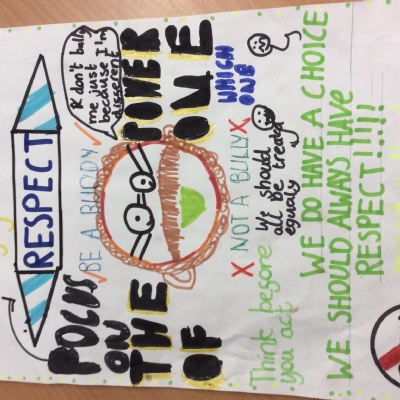 RESPECT
POCUS
ON
THE POWER
OF ONE
WHICH
ONE
R don't bully
me just
because I'm
disserent
BE A BUDDY
NOT A BULLY
Think besore
you act
We should
all be treated
equally
WE DO HAVE A CHOICE
WE SHOULD ALWAYS HAVE
RESPECT!!!!!